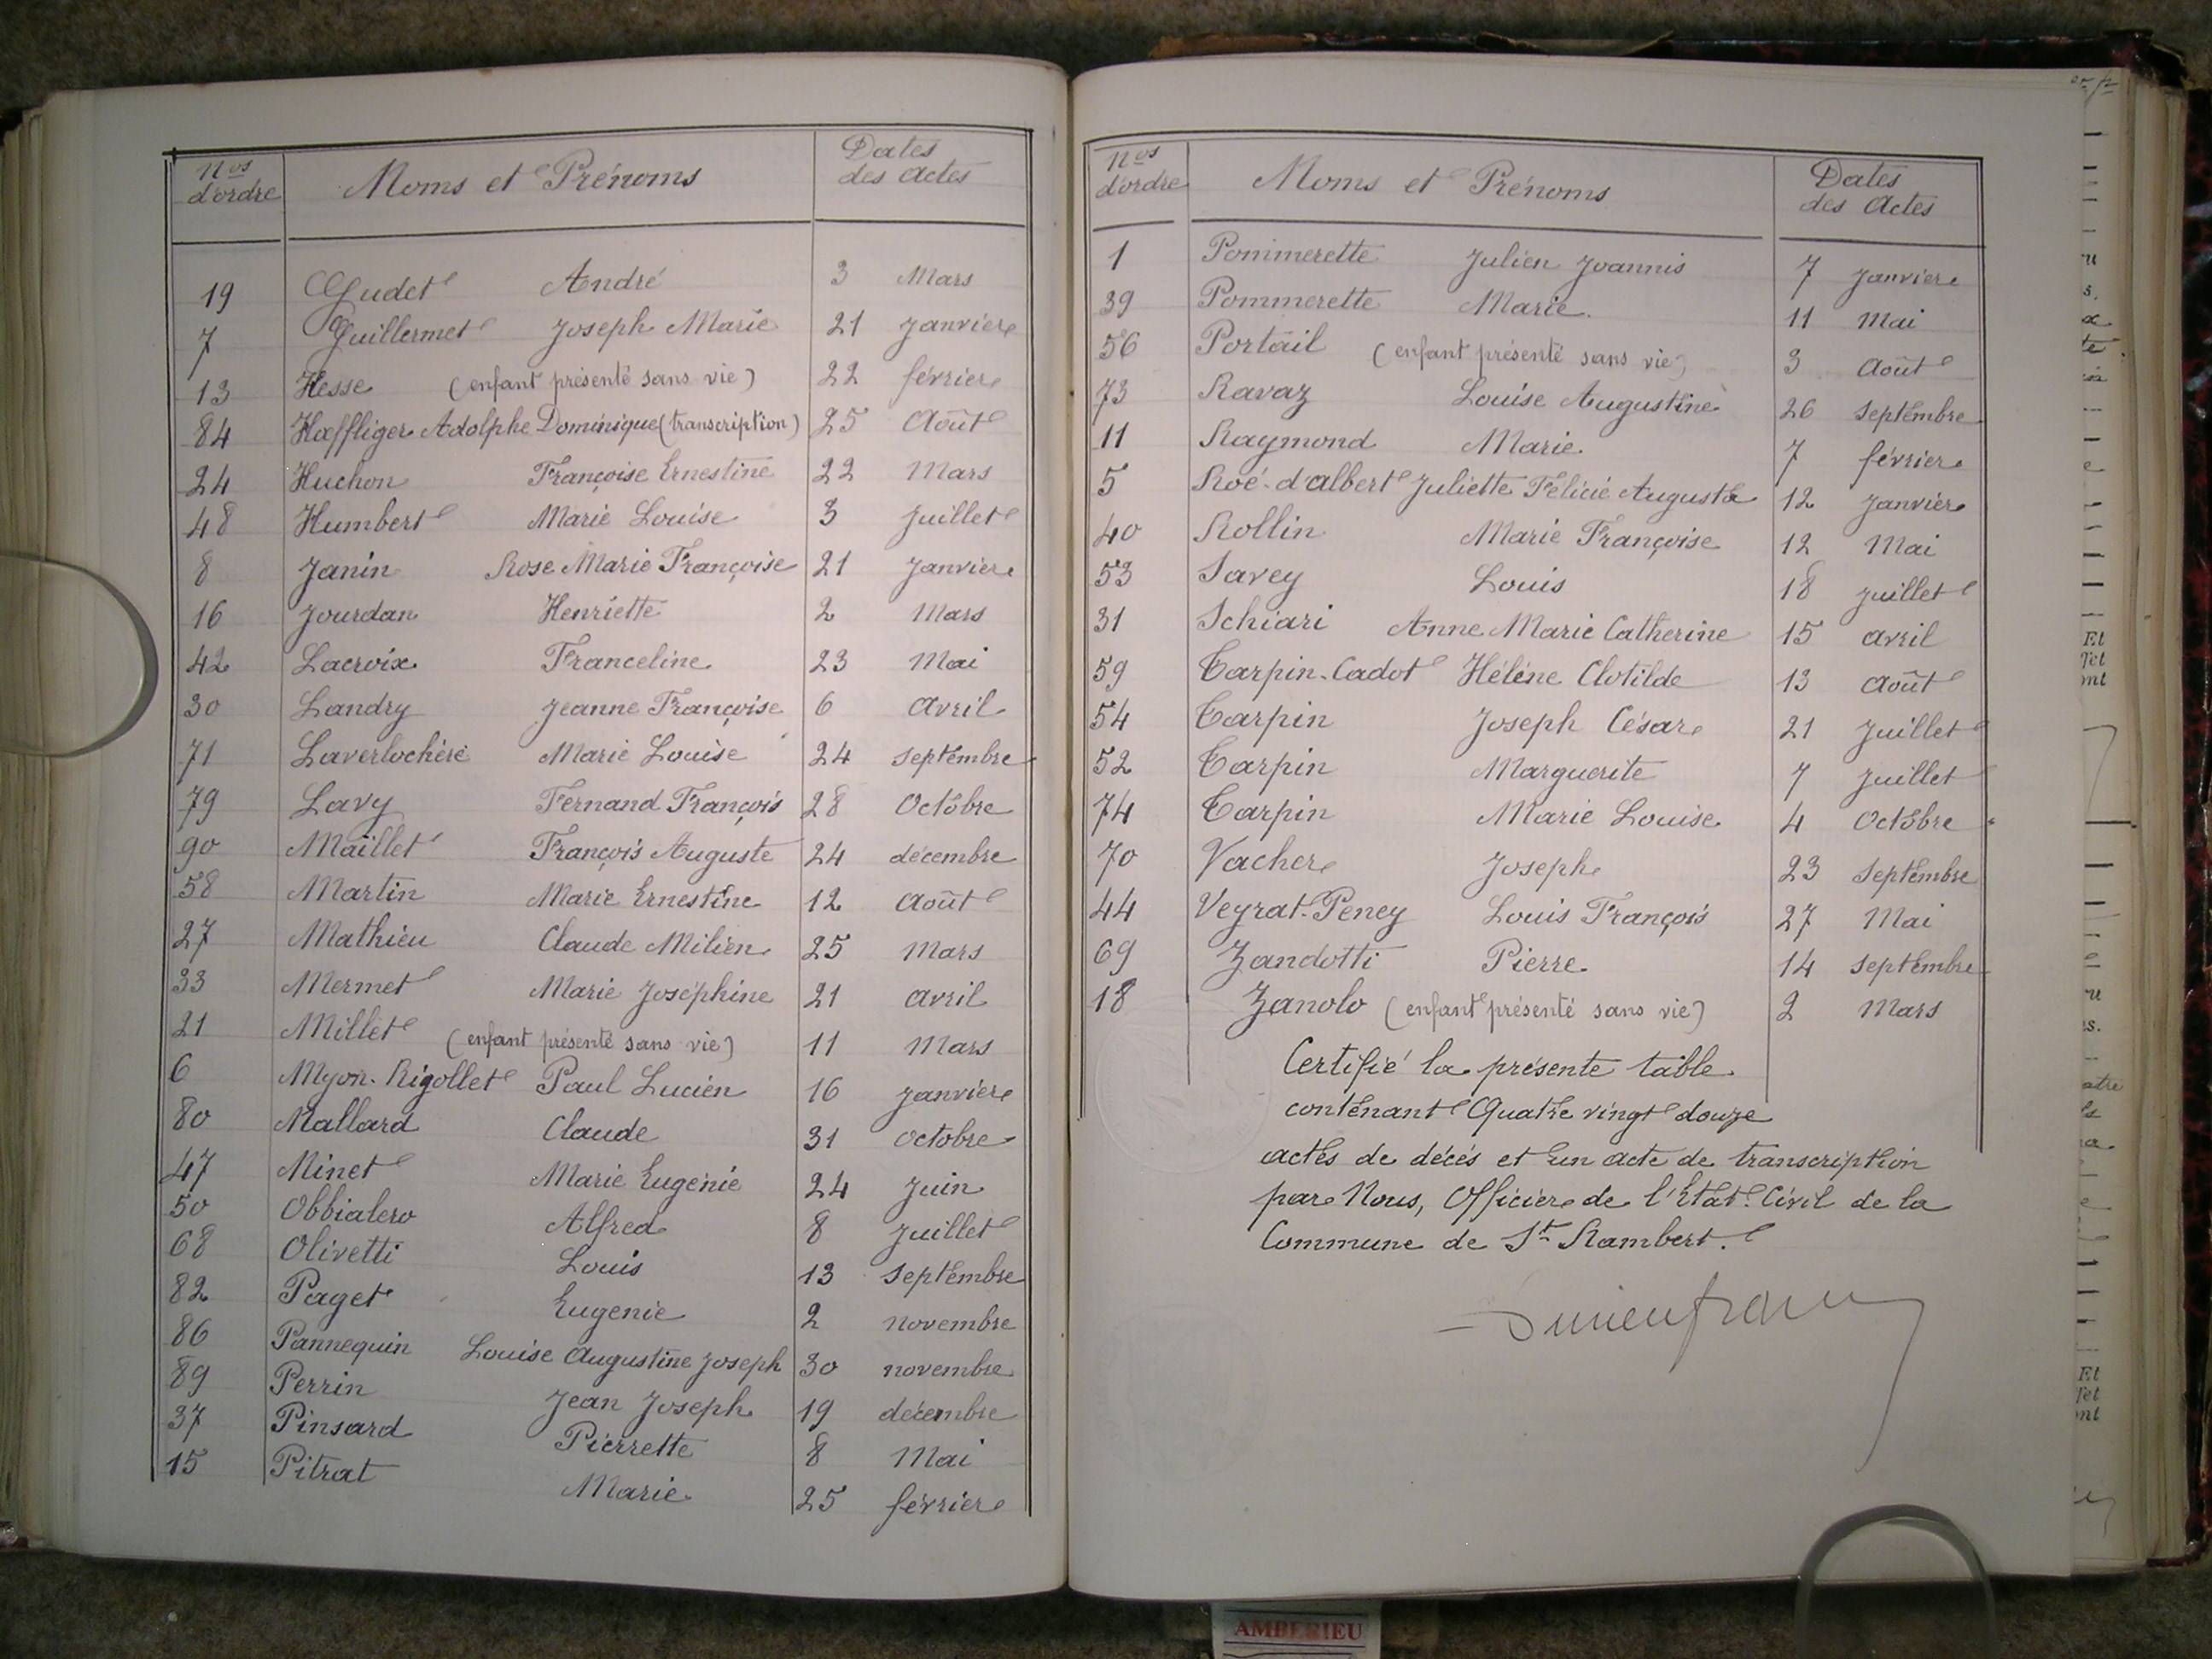 Nos d'ordre Noms et Prénoms Dates des Actes
19 Gudet André 3 Mars
7 Guillermet Joseph Marie 21 Janvier
13 Hesse (enfant présenté sans vie) 22 février
84 Hoeffliger Adolphe Dominique (transcription) 25 Août
24 Huchon Françoise Ernestine 22 Mars
48 Humbert Marie Louise 3 Juillet
8 Janin Rose Marie Françoise 21 Janvier
16 Jourdan Henriette 2 Mars
42 Lacroix Franceline 23 Mai
30 Landry Jeanne Françoise 6 Avril
71 Laverlochère Marie Louise 24 Septembre
79 Lavy Fernand François 28 Octobre
90 Maillet François Auguste 24 décembre
58 Martin Marie Ernestine 12 Août
27 Mathieu Claude Milien 25 Mars
33 Mermet Marie Joséphine 21 avril
21 Millet (enfant présenté sans vie) 11 Mars
6 Myon-Rigollet Paul Lucien 16 Janvier
80 Nallard Claude 31 Octobre
47 Ninet Marie Eugénie 24 Juin
50 Obbialero Alfred 8 Juillet
68 Olivetti Louis 13 Septembre
82 Paget Eugenie 2 novembre
86 Pannequin Louise Augustine Joseph 30 novembre
89 Perrin Jean Joseph 19 décembre
37 Pinsard Pierrette 8 Mai
15 Pitrat Marie 25 février
Nos d'ordre Noms et Prénoms Dates des Actes
1 Pommerette Julien Joannis 7 Janvier
39 Pommerette Marie 11 Mai
56 Portail (enfant présenté sans vie) 3 Août
73 Ravaz Louise Augustine 26 Septembre
11 Raymond Marie 7 février
5 Roé-d'albert Juliette Félicie Augusta 12 Janvier
40 Rollin Marie Françoise 12 Mai
53 Savey Louis 18 Juillet
31 Schiari Anne Marie Catherine 15 avril
59 Tarpin-Cadot Hélène Clotilde 13 Août
54 Tarpin Joseph César 21 Juillet
52 Tarpin Marguerite 7 Juillet
74 Tarpin Marie Louise 4 Octobre
70 Vacher Joseph 23 Septembre
44 Veyrat-Peney Louis François 27 Mai
69 Zandotti Pierre 14 Septembre
18 Zanolo (enfant présenté sans vie) 2 Mars
Certifié la présente table
contenant Quatre vingt douze
actes de décès et un acte de transcription
par Nous, Officier de l'Etat-Civil de la
Commune de St Rambert.
AMBERIEU